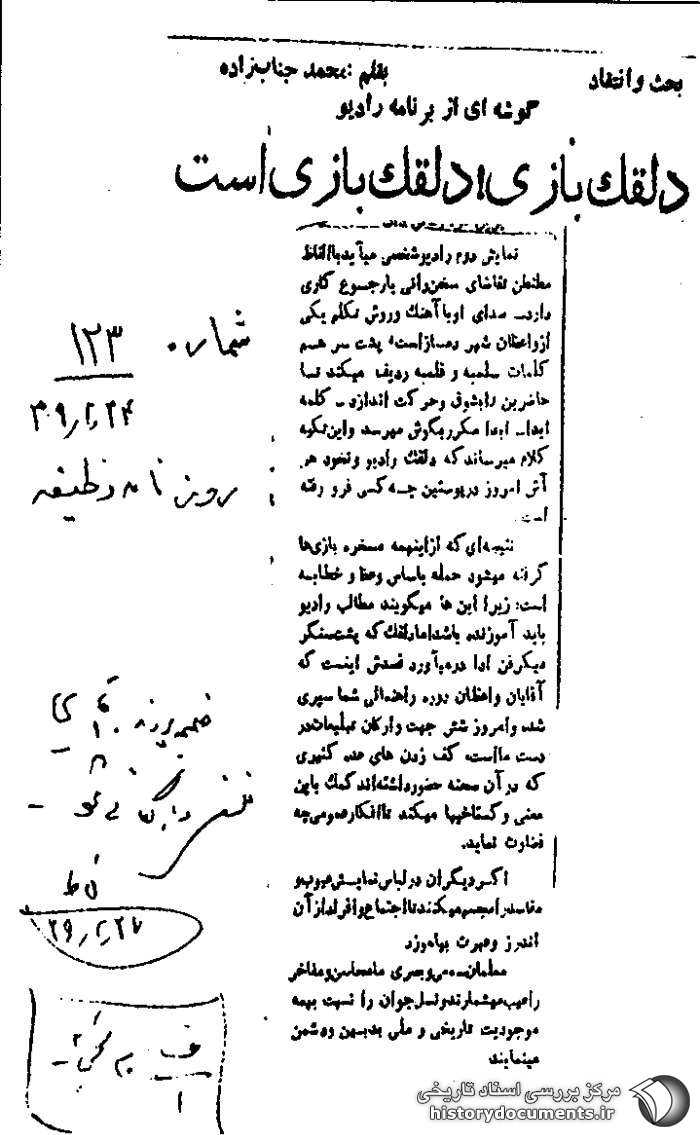 بحث و انتقاد
بقلم : محمد جناب‌زاده
گوشه ای از برنامه رادیو
دلقك بازی ؛ دلقك بازی است
نمایش دوم رادیو شخصی میآید با الفاظ
مطنطن تقاضای سخن‌رانی یا رجوع کاری
دارد. صدای او با آهنك و روش تکلم یکی
از واعظان شهر دمساز است؛ پشت سر هم
کلمات سلمبه و قلمبه ردیف میکند تا
حاضرین را بشوق و حرکت اندازد. کلمه
ابدا.. ابدا مکرر بگوش میرسد و این تکیه
کلام میرساند که دلقك رادیو و نخود هر
آش امروز در پوستین چه کسی فرو رفته
است.
نتیجه‌ای که از اینهمه مسخره بازی‌ها
گرفته میشود حمله باساس وعظ و خطابه
است؛ زیرا این ها میگویند مطالب رادیو
باید آموزنده باشد اما دلقك که پشت سنگر
دیگر فن ادا درمیآورد قصدش اینست که
آقایان واعظان دوره راهنمائی شما سپری
شده و امروز شش جهت و ارکان تبلیغات در
دست ماست، کف زدن های عده کثیری
که در آن صحنه حضور داشته‌اند کمك باین
معنی و گستاخیها میکند تا افکار عمومی چه
قضاوت نماید.
اگر دیگران در لباس نمایش عیوب و
مفاسد را مجسم میکنند تا اجتماع و افراد از آن
اندرز و عبرت بیاموزد
معلمان سمعی و بصری ما محاسن و مفاخر
را عیب میشمارند و نسل جوان را نسبت بهمه
موجودیت تاریخی و ملی بدبین و دشمن
مینمایند
شماره
۱۲۳
۳۹٫۲٫۲۴
روزنامه وظیفه
ضمیمه پرونده
۳۹٫۲٫۲۷
مرکز بررسی اسناد تاریخی
historydocuments.ir